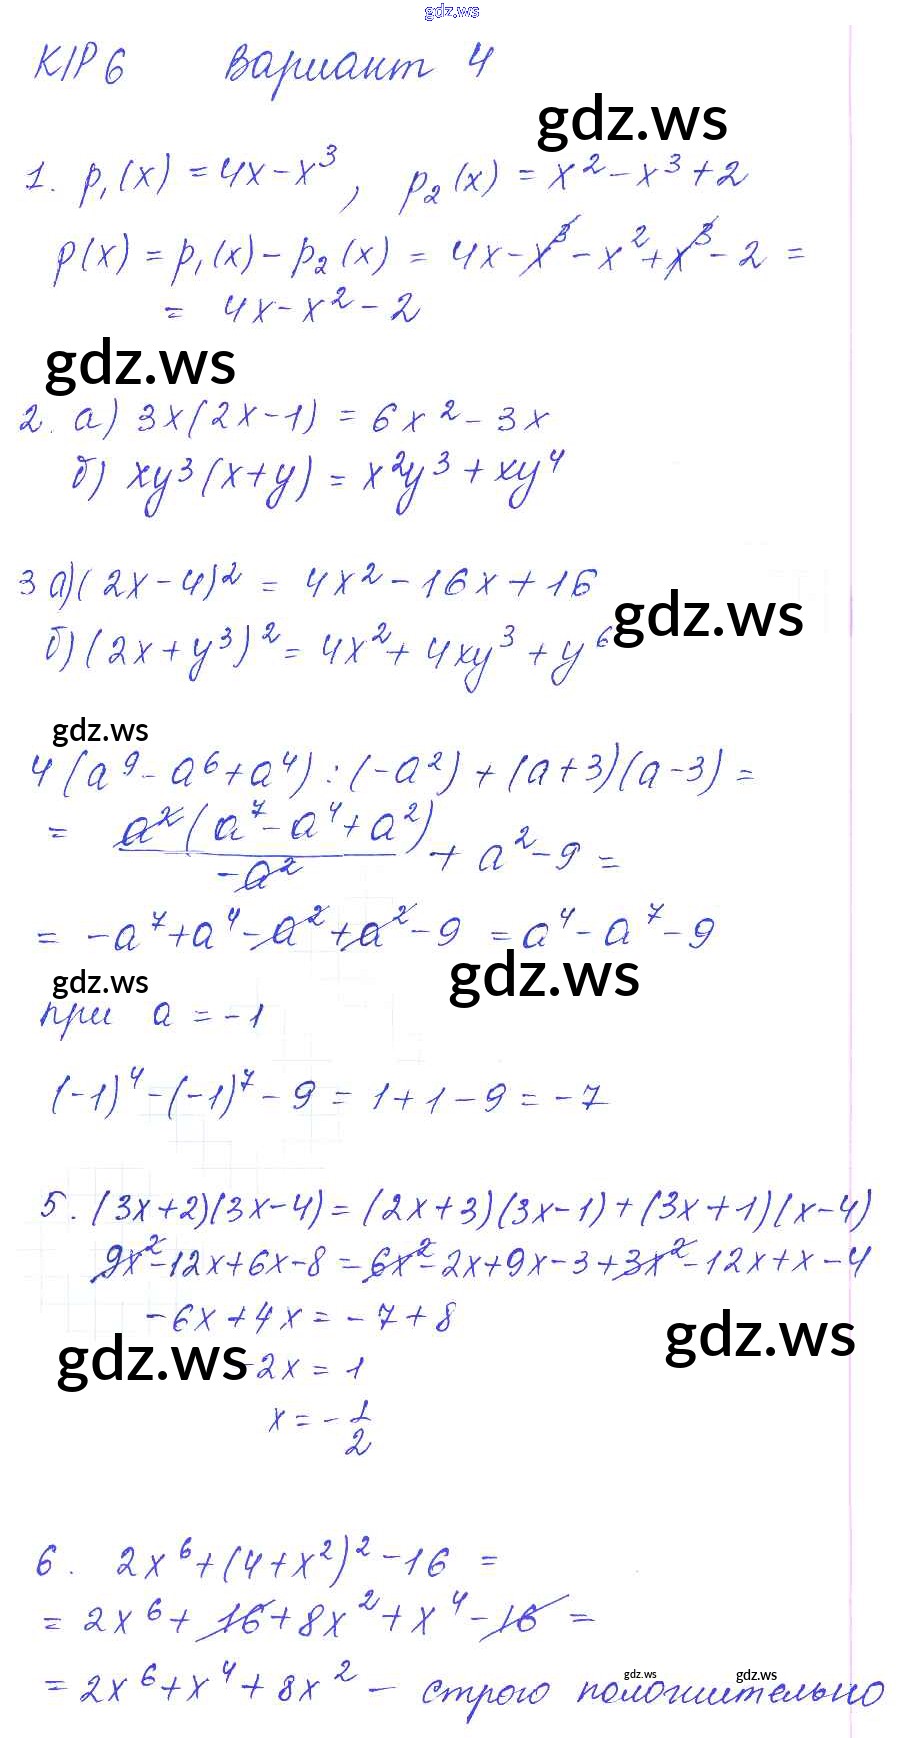 gdz.ws
К/Р 6 Вариант 4
gdz.ws
1. p₁(x) = 4x - x³, p₂(x) = x² - x³ + 2
p(x) = p₁(x) - p₂(x) = 4x - x³ - x² + x³ - 2 =
= 4x - x² - 2
gdz.ws
2. а) 3x(2x-1) = 6x² - 3x
б) xy³(x+y) = x²y³ + xy⁴
3 а) (2x-4)² = 4x² - 16x + 16
gdz.ws
б) (2x+y³)² = 4x² + 4xy³ + y⁶
gdz.ws
4 (a⁹ - a⁶ + a⁴) : (-a²) + (a+3)(a-3) =
= a²(a⁷ - a⁴ + a²) / -a² + a² - 9 =
= -a⁷ + a⁴ - a² + a² - 9 = a⁴ - a⁷ - 9
gdz.ws gdz.ws
при a = -1
(-1)⁴ - (-1)⁷ - 9 = 1 + 1 - 9 = -7
5. (3x+2)(3x-4) = (2x+3)(3x-1) + (3x+1)(x-4)
9x² - 12x + 6x - 8 = 6x² - 2x + 9x - 3 + 3x² - 12x + x - 4
-6x + 4x = -7 + 8
gdz.ws gdz.ws
-2x = 1
x = -1/2
6. 2x⁶ + (4+x²)² - 16 =
= 2x⁶ + 16 + 8x² + x⁴ - 16 =
gdz.ws gdz.ws
= 2x⁶ + x⁴ + 8x² - строго положительно